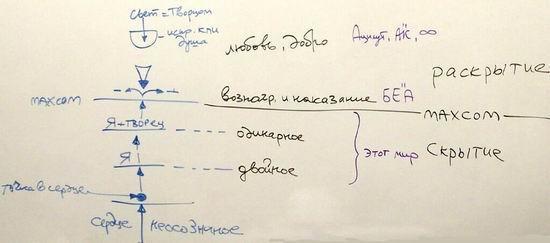 свет = Творцом
испр. кли
душа
любовь, добро
Ацилут, АК, ∞
раскрытие
махсом
- +
вознагр. и наказание БЕА
махсом
Я+творец
одинарное
Этот мир
Скрытие
Я
двойное
точка в сердце
сердце неосознанное